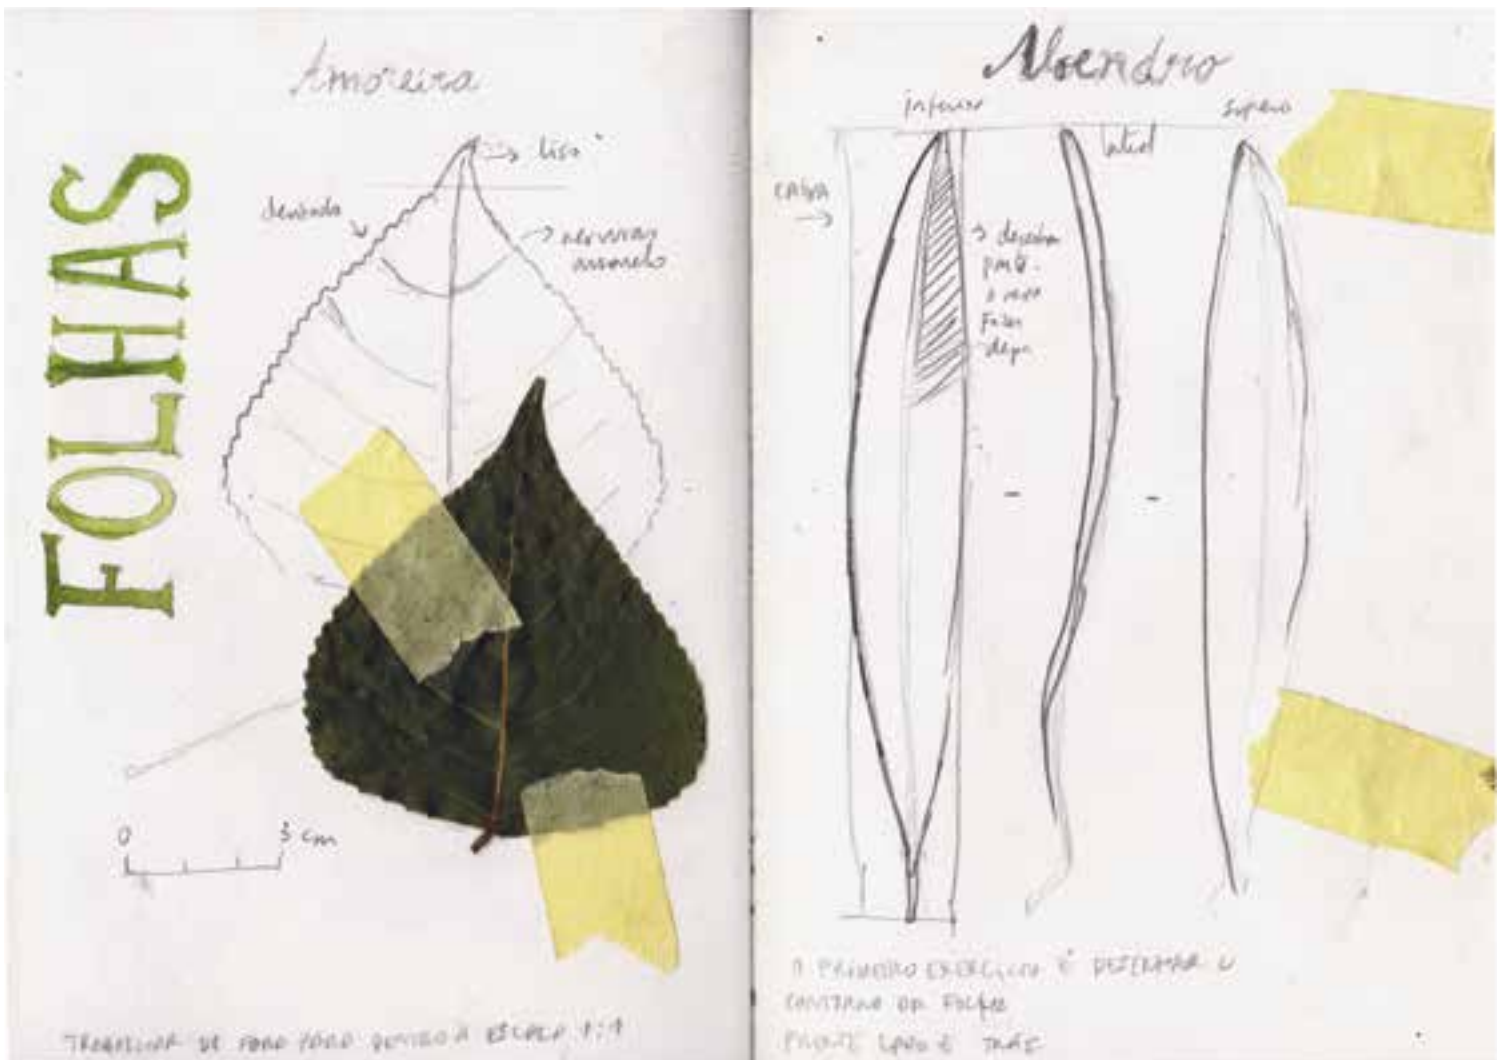 FOLHAS
Amoreira
liso
dentado
nervuras
0 3 cm
TRABALHAR DE FORA PARA DENTRO À ESCALA 1:1
Aloendro
inferior
superio
lateral
CAIXA
desenhar
o resto
Fazer
depois
O PRIMEIRO EXERCÍCIO É DESENHAR O
CONTORNO DA FOLHA
FRENTE LADO E TRÁS